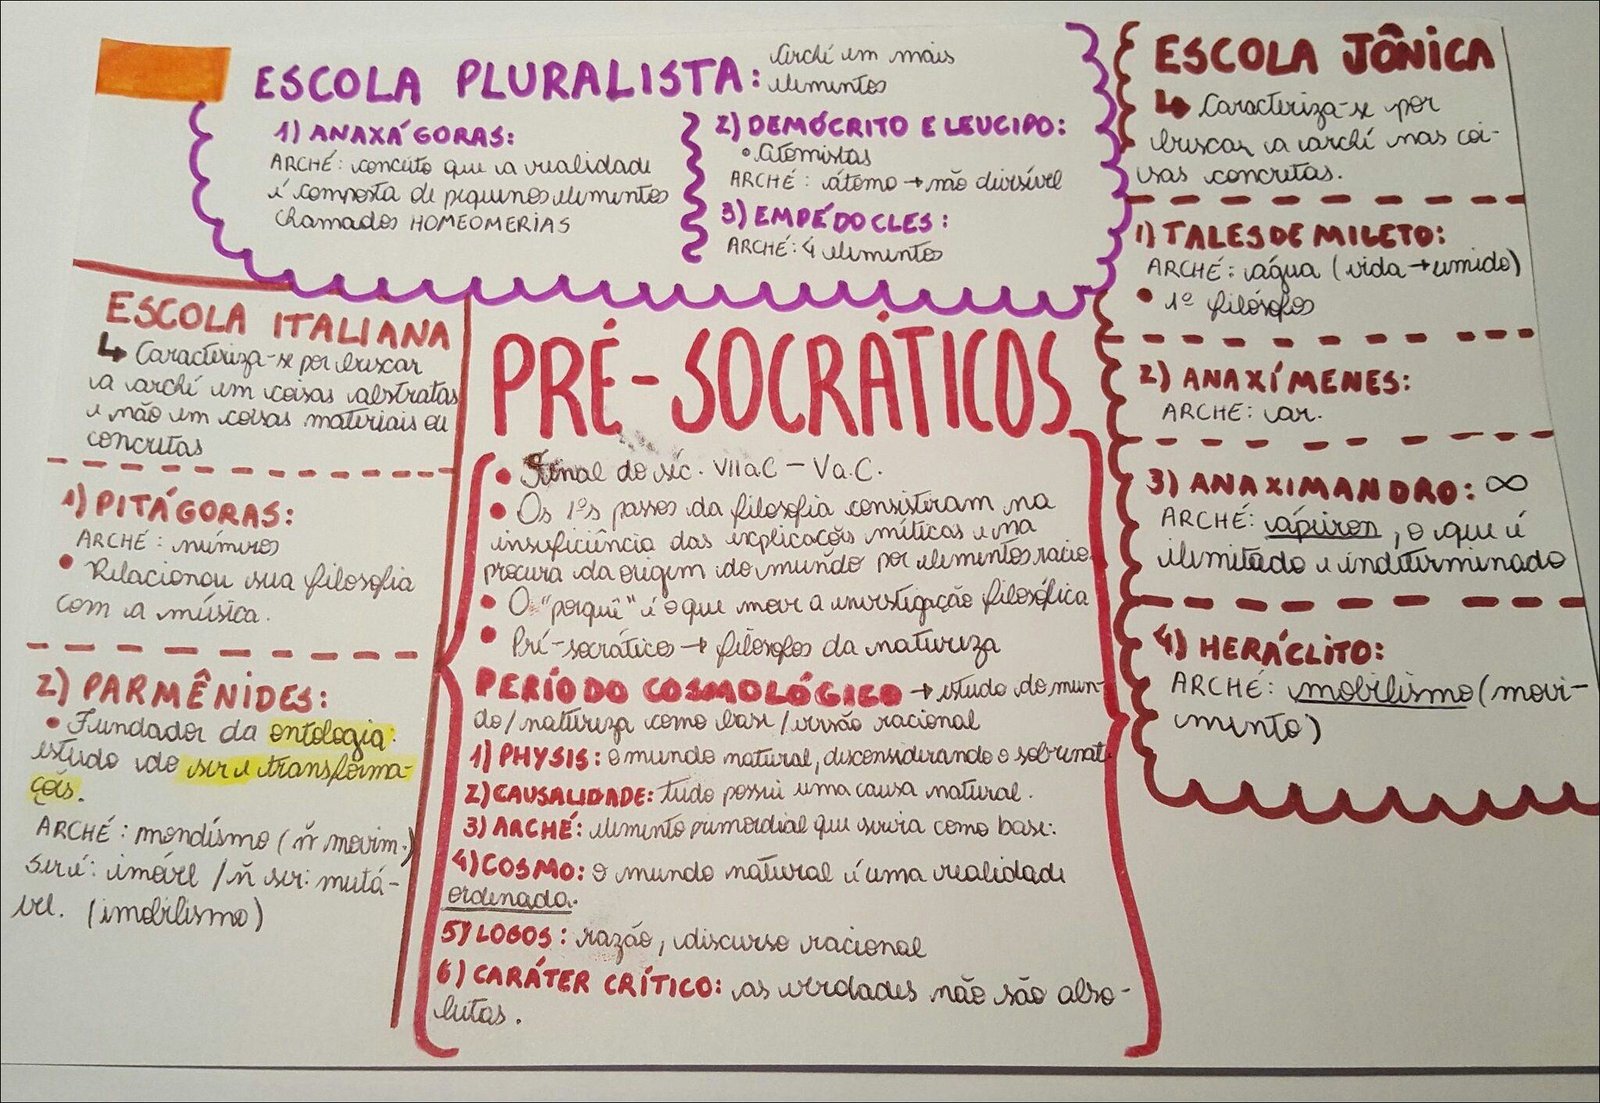 ESCOLA PLURALISTA: Arché em mais
elementos
1) ANAXÁGORAS:
ARCHÉ: conceito que a realidade
é composta de pequenos elementos
chamados HOMEOMERIAS
2) DEMÓCRITO E LEUCIPO:
• Atomistas
ARCHÉ: átomo → não divisível
3) EMPÉDOCLES:
ARCHÉ: 4 elementos
ESCOLA JÔNICA
↳ Caracteriza-se por
buscar a arché nas coi-
sas concretas.
1) TALES DE MILETO:
ARCHÉ: água (vida → úmido)
• 1º filósofos
2) ANAXÍMENES:
ARCHÉ: ar.
3) ANAXIMANDRO: ∞
ARCHÉ: ápeiron, o que é
ilimitado e indeterminado
4) HERÁCLITO:
ARCHÉ: mobilismo (movi-
mento)
ESCOLA ITALIANA
↳ Caracteriza-se por buscar
a arché em coisas abstratas
e não em coisas materiais ou
concretas
1) PITÁGORAS:
ARCHÉ: números
• Relacionou sua filosofia
com a música.
2) PARMÊNIDES:
• Fundador da ontologia:
estudo do ser e transforma-
ções.
ARCHÉ: mondismo (ñ movim.)
ser é: imóvel / ñ ser: mutá-
vel. (imobilismo)
PRÉ-SOCRÁTICOS
• Final do séc. VII a.C - V a.C.
• Os 1ºs passos da filosofia consistiram na
insuficiência das explicações míticas e na
procura da origem do mundo por elementos racio
• O "porquê" é o que move a investigação filosófica
• Pré-socráticos → filósofos da natureza
PERÍODO COSMOLÓGICO → estudo do mun-
do/natureza como base/versão racional
1) PHYSIS: o mundo natural, desconsiderando o sobrenat.
2) CAUSALIDADE: tudo possui uma causa natural.
3) ARCHÉ: elemento primordial que servia como base.
4) COSMO: o mundo natural é uma realidade
ordenada.
5) LOGOS: razão, discurso racional
6) CARÁTER CRÍTICO: as verdades não são abso-
lutas.